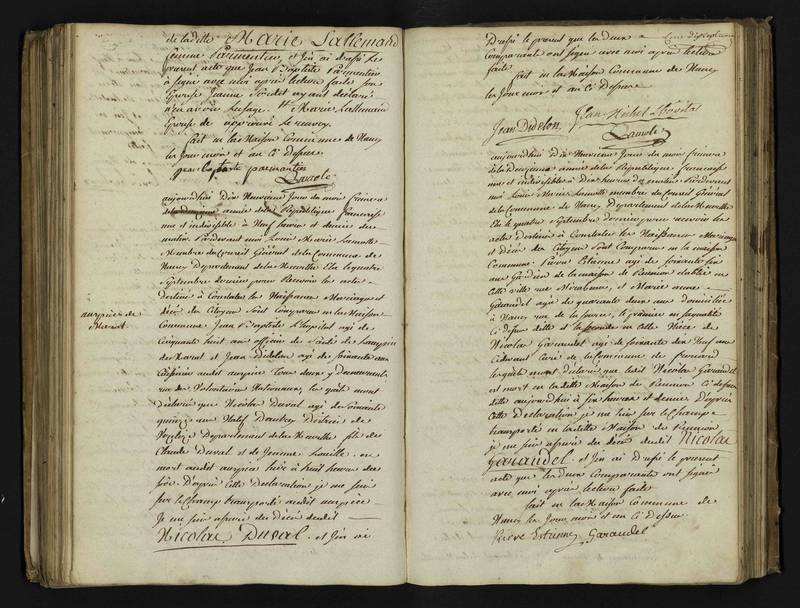 de ladite Marie Lallemand
femme Parmentier, et j'en ai dressé le
présent acte que Jean Baptiste Parmentier
a signé avec moi après lecture faite son
Epouse Jeanne ayant déclaré
Marie Lallemand
Epouse de approuvé le renvoy
fait en la Maison Commune de Nancy
les Jour mois et an Ci dessus
jean baptiste parmantier
Lamole
aujourdhui Dix Neuvieme Jour du mois frimere
année de la République francoise
une et indivisible à Neuf heures et demie du
matin Pardevant moi Louis Marie Lamolle
Membre du Conseil Général de la Commune de
Nancy Département de la Meurthe Elu le quatre
Septembre dernier pour Recevoir les actes
Destinés à Constater les Naissances Mariages et
décès des Citoyens Sont Comparus en la Maison
Commune Jean Baptiste L'hopital agé de
Cinquante huit ans officier de Santé de Lauspice
de Marat et Jean Didelon agé de soixante ans
Cuisinier audit auspice tous deux y demeurants
rue des Volontaires Nationaux, les quels m'ont
déclaré que Nicolas Duval agé de Soixante
quinze ans Natif District de
Vezelize Département de la Meurthe fils de
Claude Duval et de Jeanne est
mort audit auspice hier à huit heures du
soir. D'après Cette Déclaration je me suis
sur le Champ transporté audit auspice
Je me suis assuré du Décès dudit
Nicolas Duval. et J'en ai
auspice de
Marat
Dressé le présent que les deux
Comparants ont signé avec moi après lecture
faite
fait en la Maison Commune de Nancy
les Jour mois et an Ci dessus
Jean Didelon Jean Michel
Lamole
aujourdhui Dix Neuvieme Jour du mois frimere
de la Deuxieme année de la République francoise
une et indivisible à Dix heures du matin Pardevant
moi Louis Marie Lamolle membre du Conseil Général
de la Commune de Nancy Département de la Meurthe
Elu le quatre Septembre dernier pour recevoir les
actes destinés à Constater les Naissances Mariages
et Décès des Citoyens Sont Comparus en la maison
Commune Pierre Etienne agé de soixante six
ans Gardien de la maison de Reunion établie en
Cette ville rue Mirabeau, et Marie anne
Garaudel agée de quarante deux ans domiciliée
à Nancy rue de la source, le premier en saqualité
Ci dessus dite et la seconde en Celle Niece de
Nicolas Garaudel agé de soixante dix Neuf ans
Cidevant Curé de la Commune de
lesquels mont déclaré que ledit Nicolas Garaudel
est mort en ladite Maison de Reunion Ci dessus
dite aujourdhui à heures et demie D'après
Cette Déclaration je me suis sur le Champ
transporté en ladite Maison de Reunion
je me suis assuré du décès dudit Nicolas
Garaudel. et J'en ai Dressé le présent
acte que les Deux Comparants ont signé
avec moi après lecture faite
fait en la Maison Commune de
Nancy les Jour mois et an Ci Dessus
Pierre Estienne Garaudel